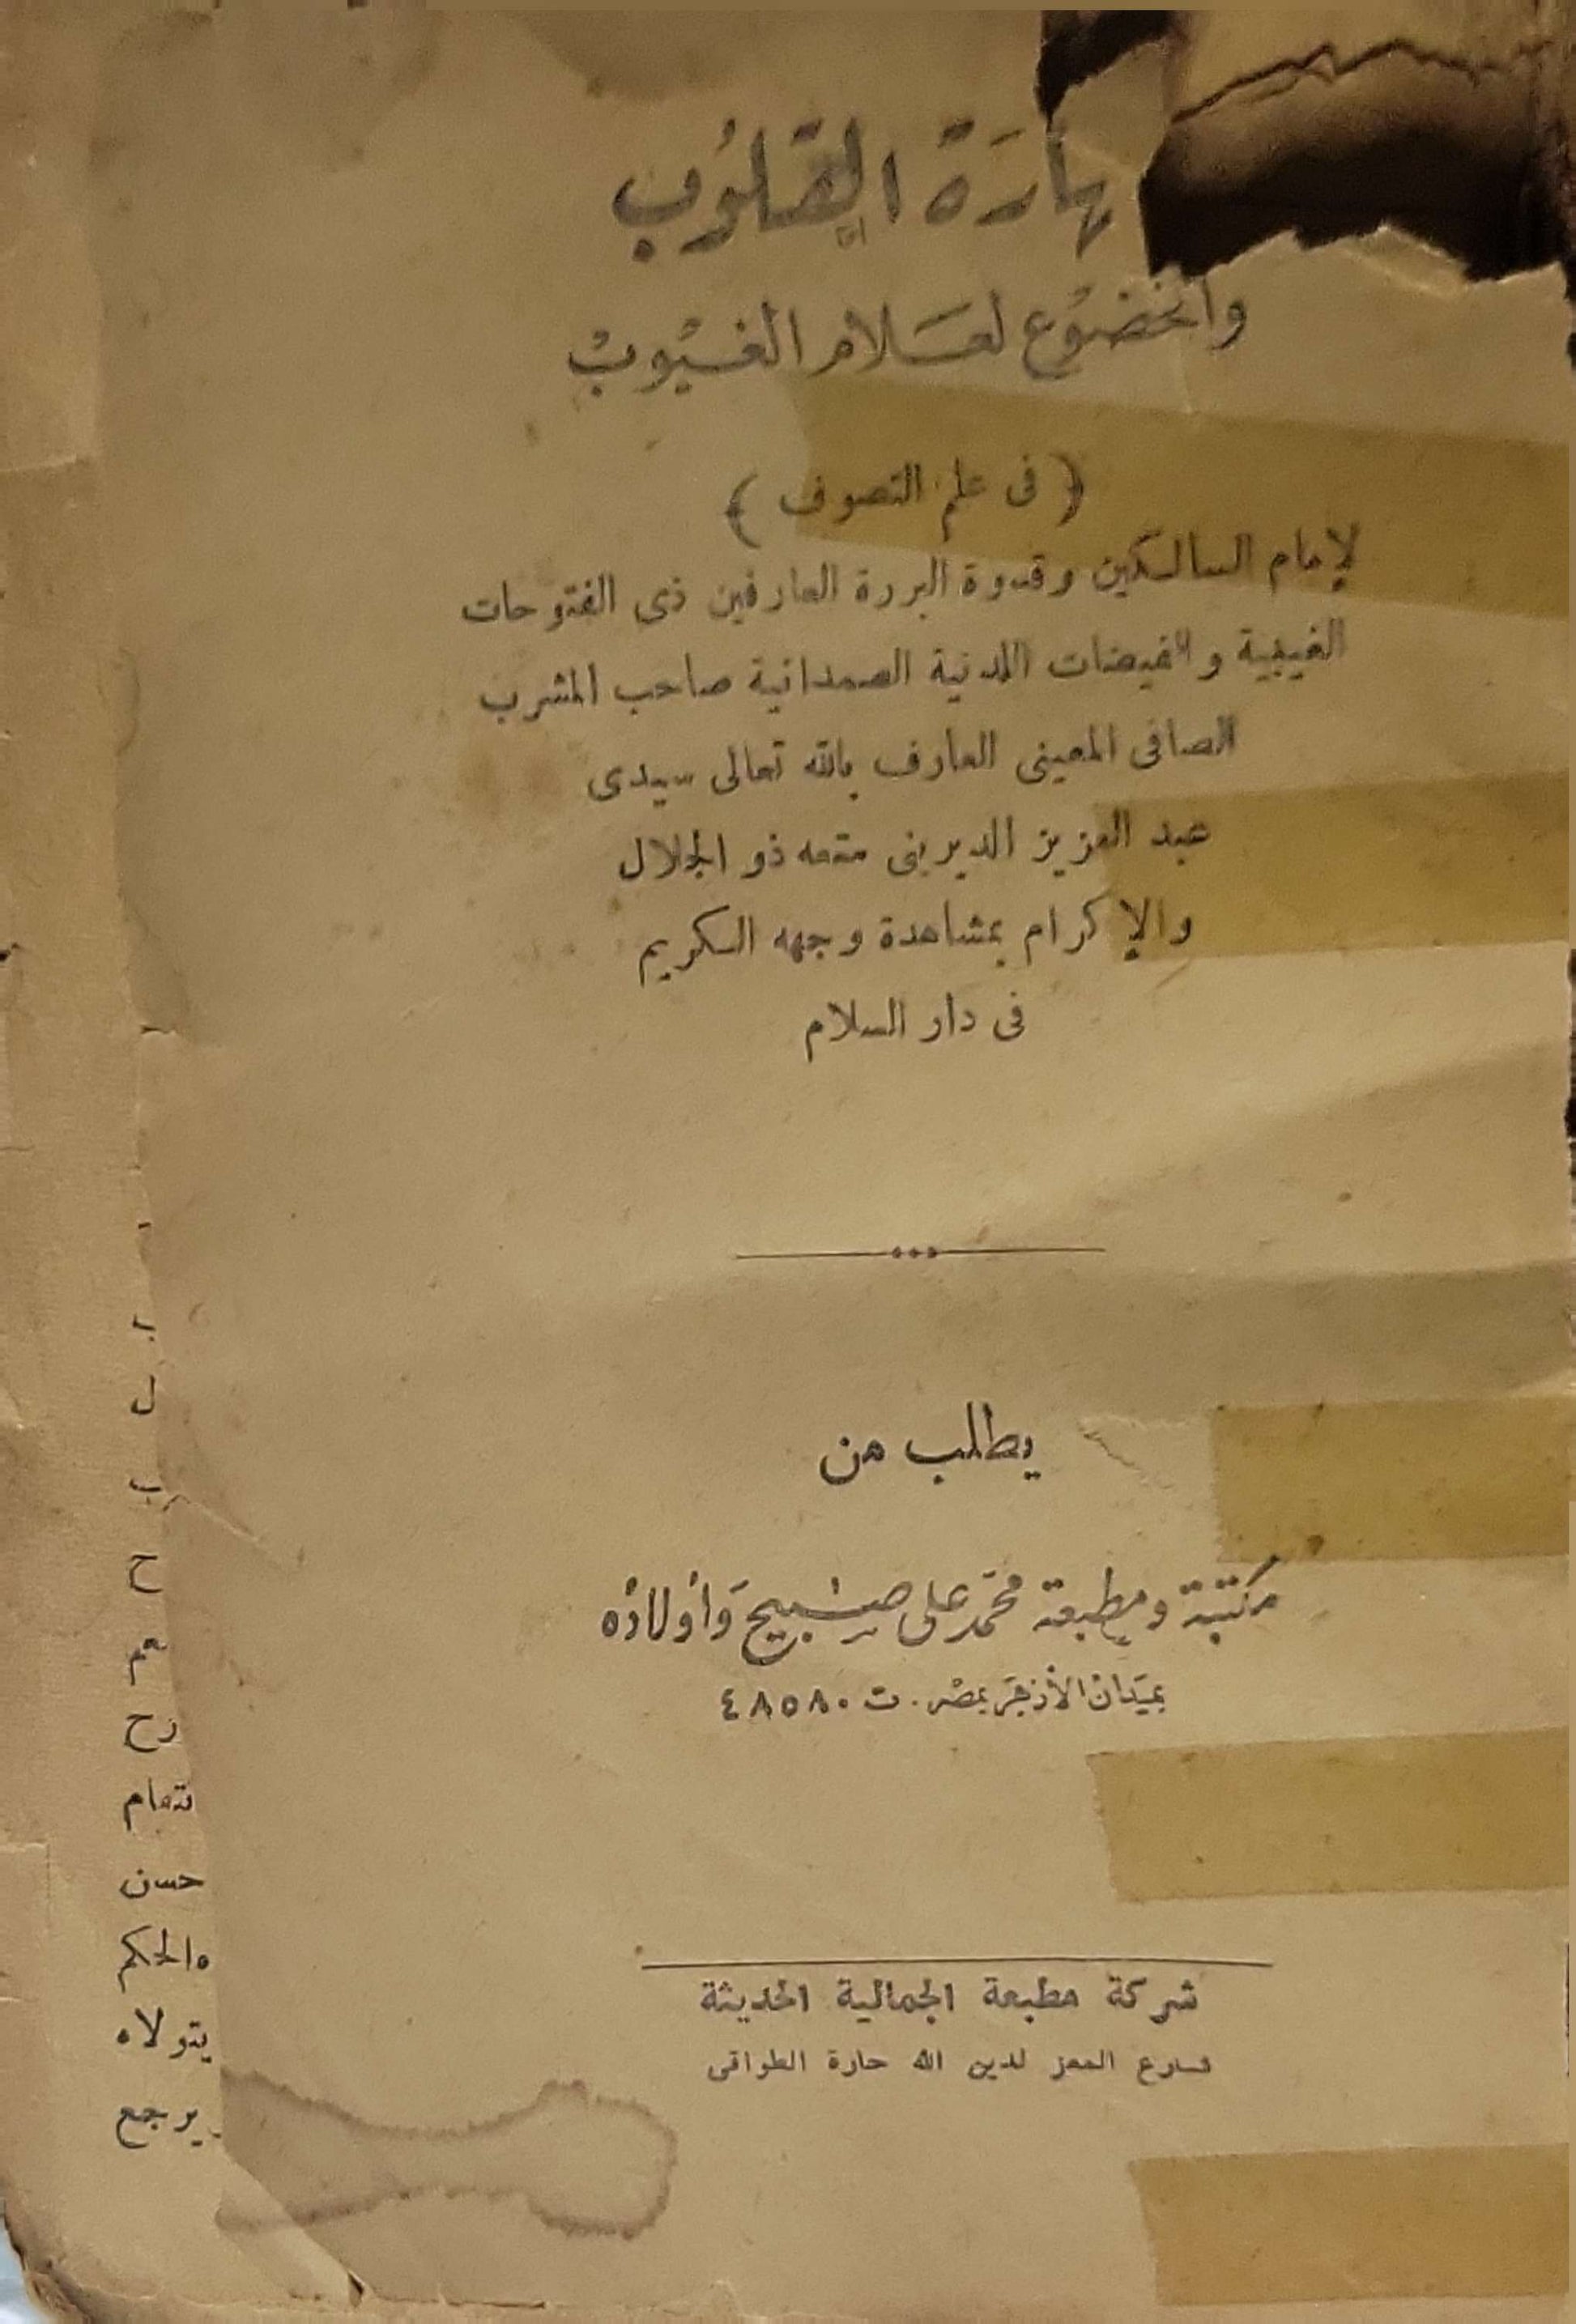 هارَة القلوُب
والخضوُع لعَلام الغيُوبْ
﴿ فى علم التصوف ﴾
لإمام السالكين وقدوة البررة العارفين ذى الفتوحات
الغيبية والفيضات اللدنية الصمدانية صاحب المشرب
الصافى المعينى العارف بالله تعالى سيدى
عبد العزيز الديرينى متعه ذو الجلال
والإكرام بمشاهدة وجهه الكريم
فى دار السلام
يطلب من
مكتبة ومطبعة محمّد على صبيح وَأولادُه
بميَدان الأزهَر بمصْر. ت ٤٨٥٨٠
شركة مطبعة الجمالية الحديثة
شارع المعز لدين الله حارة الطواقى
ب
ل
ب
ح
رح
تمام
حسن
والحكم
يتولاه
يرجع